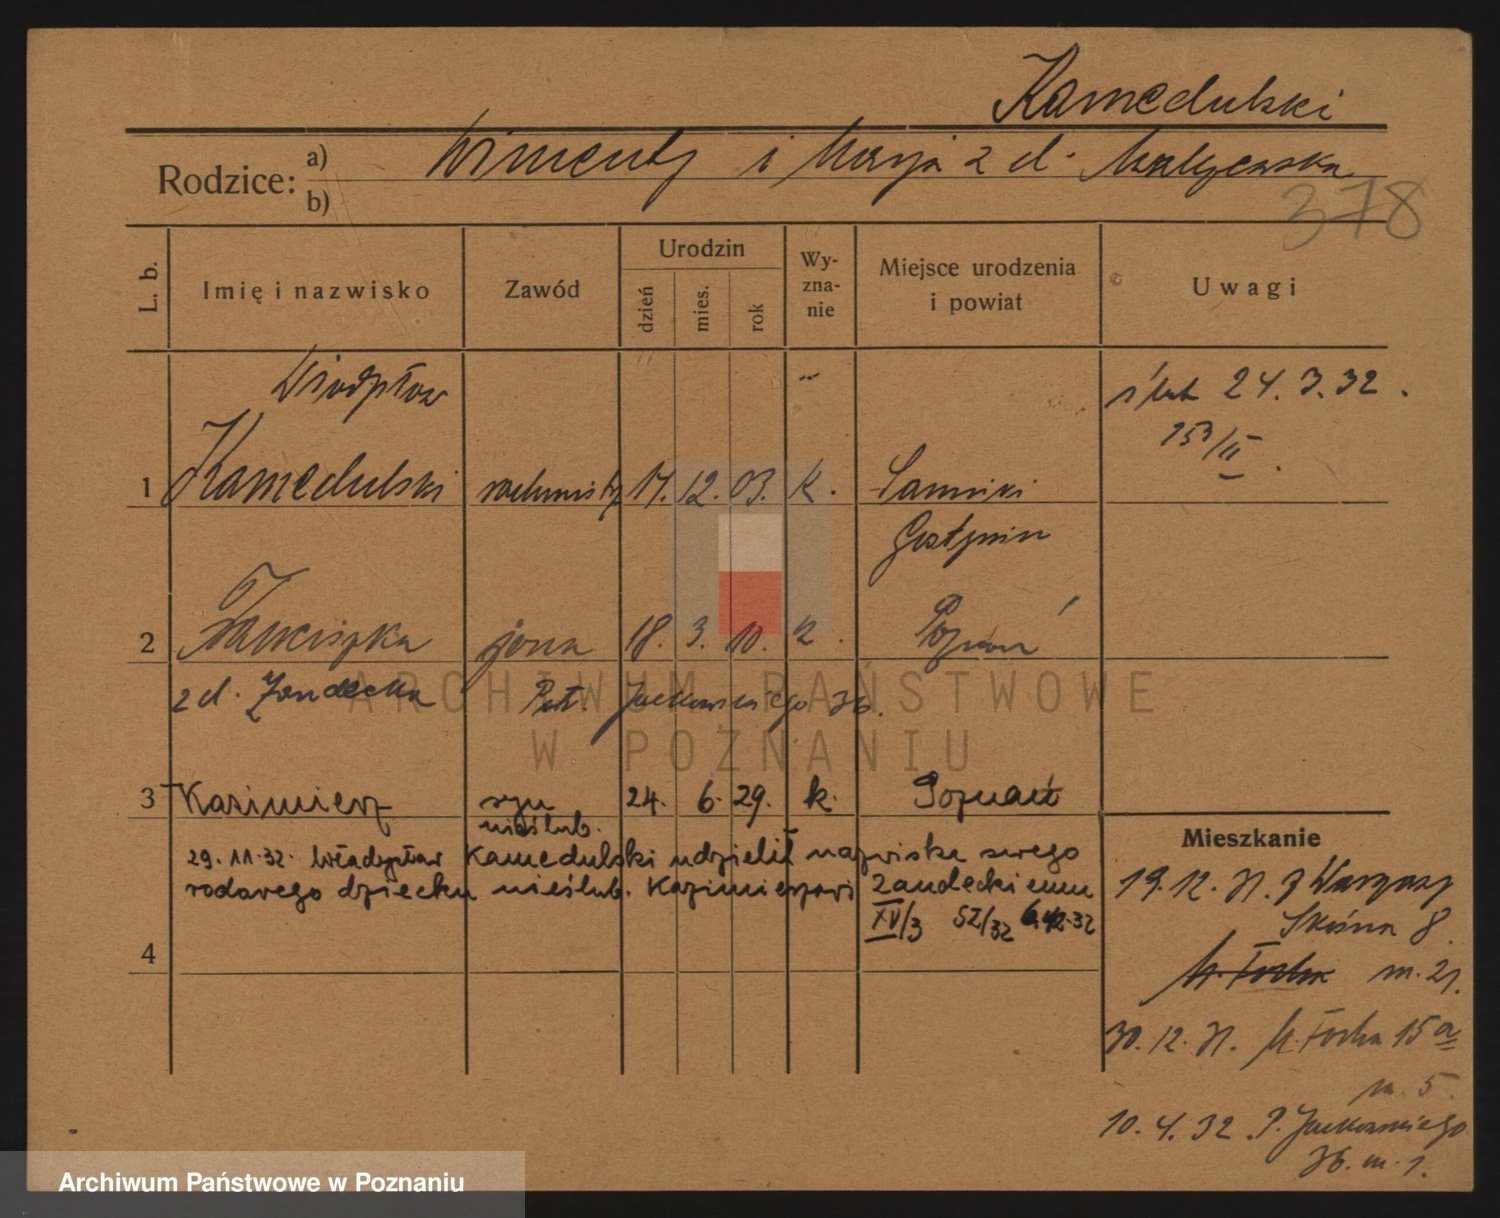 Kamedulski
Rodzice: a) Wincenty i Marja z d.
b)
378
L. b. Imię i nazwisko Zawód Urodzin Wyznanie Miejsce urodzenia i powiat Uwagi
dzień mies. rok
ślub 24. 3. 32.
153/II.
1 Kamedulski 17. 12. 03. k.
Gostynin
2 Franciszka żona 18. 3. 10. k. Poznań
z d. Żandecka Pat. Jackowskiego 36.
3 Kazimierz syn 24. 6. 29. k. Poznań
nieślub.
29.11.32. Władysław Kamedulski udzielił nazwiska swego
rodowego dziecku nieślub. Kazimierzowi Zandeckiemu
XV/3 52/32 6.12.32
4
Mieszkanie
19. 12. 31. z Warszawy
8.
M. Focha m. 21.
30. 12. 31. M. Focha 15a
m. 5.
10. 4. 32. P. Jackowskiego
36. m. 1.
ARCHIWUM PAŃSTWOWE
W POZNANIU
Archiwum Państwowe w Poznaniu